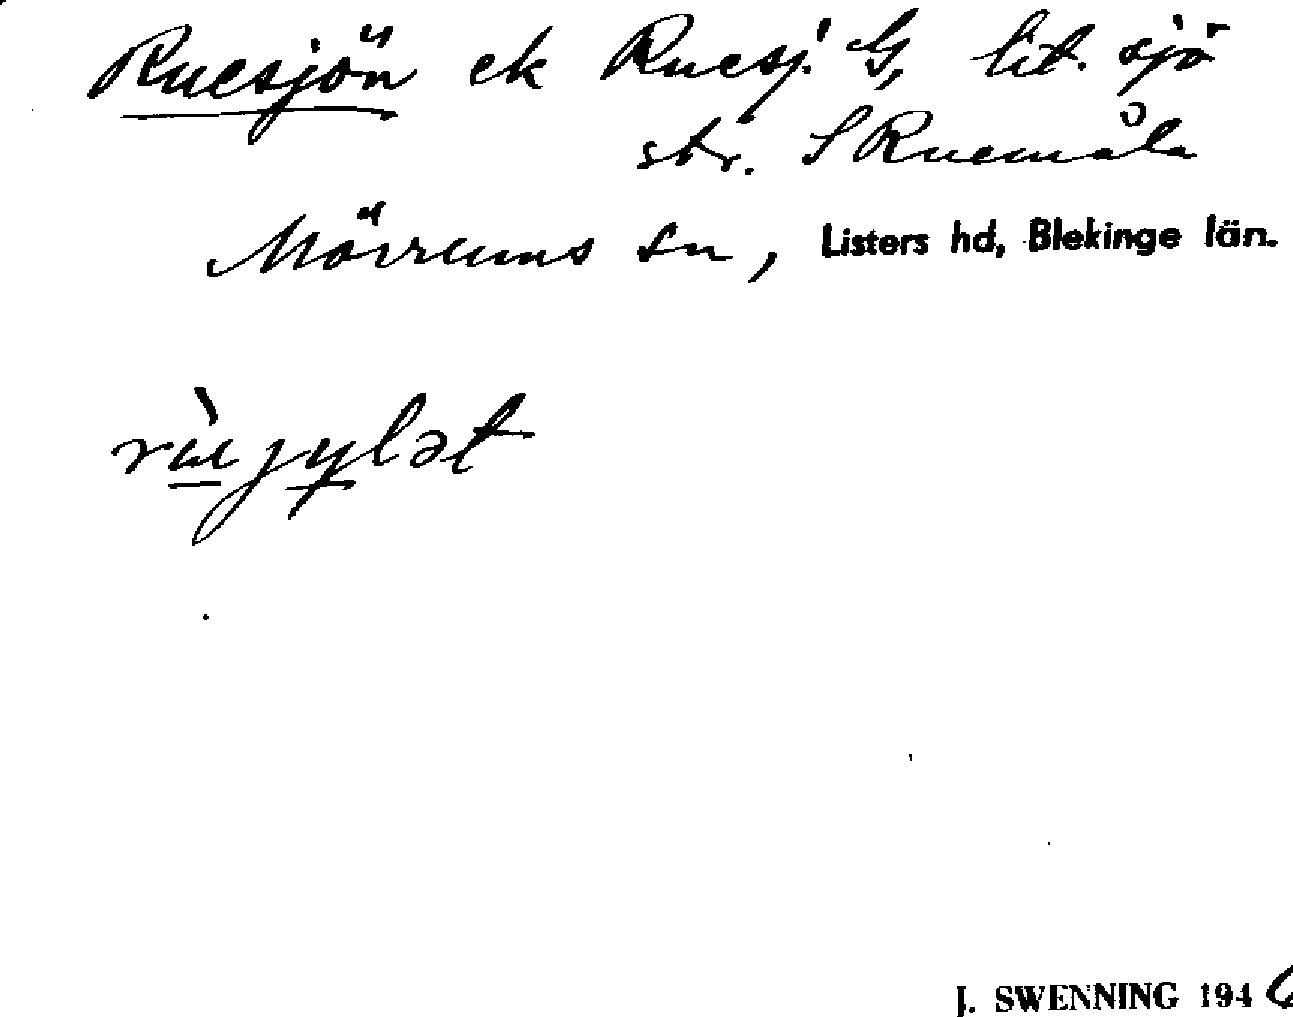 Ruesjön ek Ruesj. G, lit. sjö
str. S Ruemåla
Mörrums sn, Listers hd, Blekinge län.
rùejylət
J. SWENNING 1946